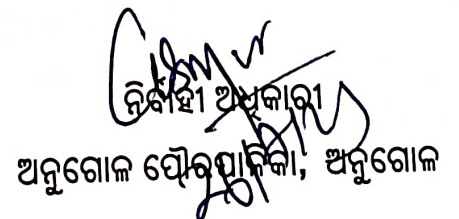 ନିର୍ବାହୀ ଅଧିକାରୀ
ଅନୁଗୋଳ ପୌରପାଳିକା, ଅନୁଗୋଳ